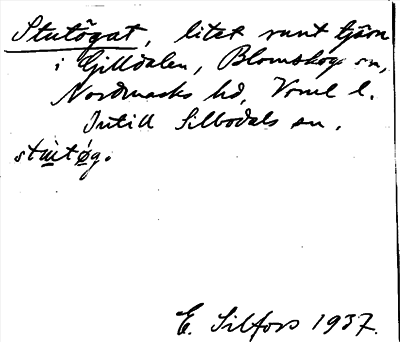 Stutögat, litet runt tjärn
i Gilldalen, Blomskog sn,
Nordmarks hd, Verml l.
Intill Silbodals sn.
stutøg.
E. Silfors 1937.